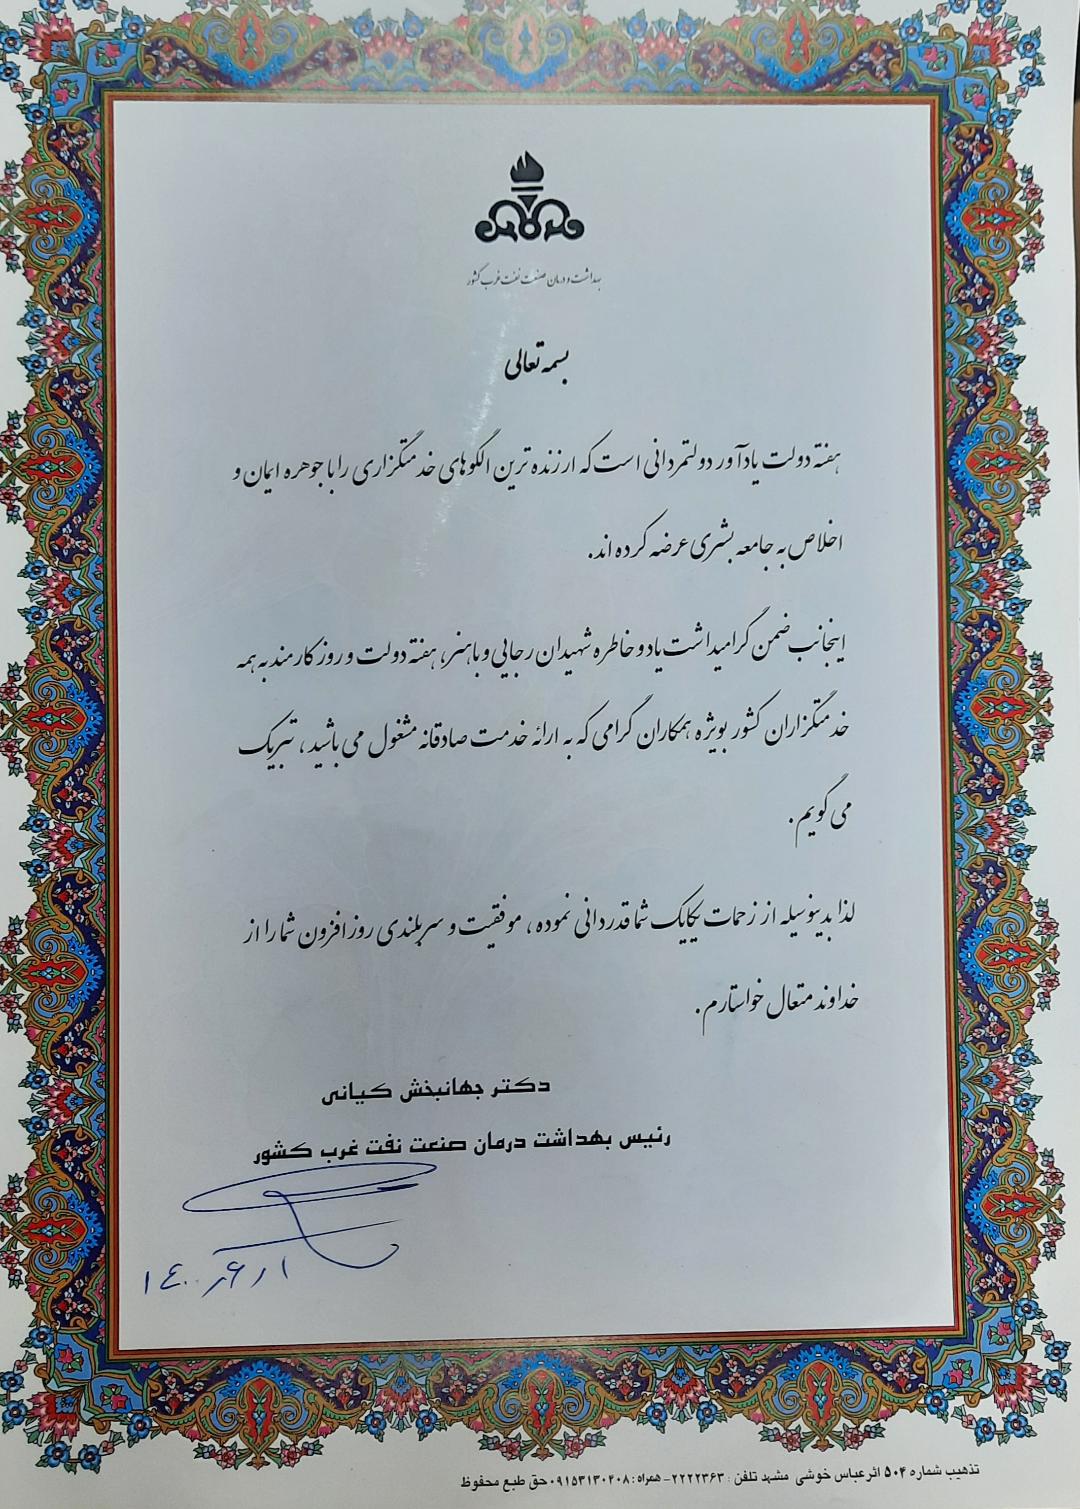 بهداشت و درمان صنعت نفت غرب کشور
بسمه تعالی
هفته دولت یادآور دولتمردانی است که ارزنده ترین الگوهای خدمتگزاری را با جوهره ایمان و
اخلاص به جامعه بشری عرضه کرده اند.
اینجانب ضمن گرامیداشت یاد و خاطره شهیدان رجایی و باهنر، هفته دولت و روز کارمند به همه
خدمتگزاران کشور بویژه همکاران گرامی که به ارائه خدمت صادقانه مشغول می باشید، تبریک
می گویم.
لذا بدینوسیله از زحمات یکایک شما قدردانی نموده، موفقیت و سربلندی روزافزون شما را از
خداوند متعال خواستارم.
دکتر جهانبخش کیانی
رئیس بهداشت درمان صنعت نفت غرب کشور
۱۴۰۰/۶/۱
تذهیب شماره ۵۰۴ اثر عباس خوشی مشهد تلفن : ۲۲۲۲۳۶۳- همراه : ۰۹۱۵۳۱۳۰۴۰۸ حق طبع محفوظ